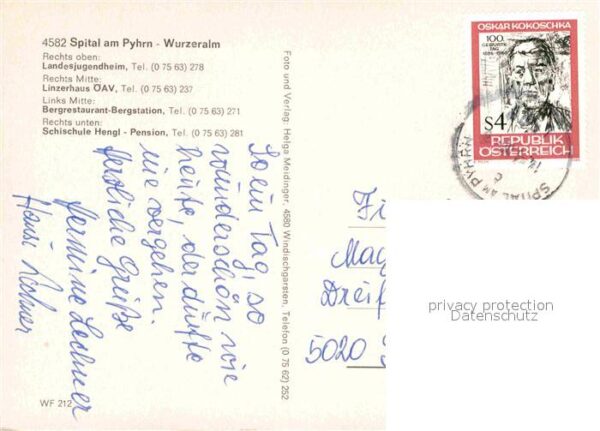 4582 Spital am Pyhrn - Wurzeralm
Rechts oben:
Landesjugendheim, Tel. (0 75 63) 278
Rechts Mitte:
Linzerhaus ÖAV, Tel. (0 75 63) 237
Links Mitte:
Bergrestaurant-Bergstation, Tel. (0 75 63) 271
Rechts unten:
Schischule Hengl - Pension, Tel. (0 75 63) 281
So ein Tag, so
wunderschön wie
heute, der dürfte
nie vergehen.
Herzliche Grüße
Hermine Lechner
Hansi Lechner
WF 212
Foto und Verlag: Helga Meidinger, 4580 Windischgarsten, Telefon (0 75 62) 252
OSKAR KOKOSCHKA
100.
GEBURTS
TAG
1886-1986
S4
REPUBLIK
ÖSTERREICH
SPITAL AM PYHRN
Fi
Mag
Dreif
5020
privacy protection
Datenschutz